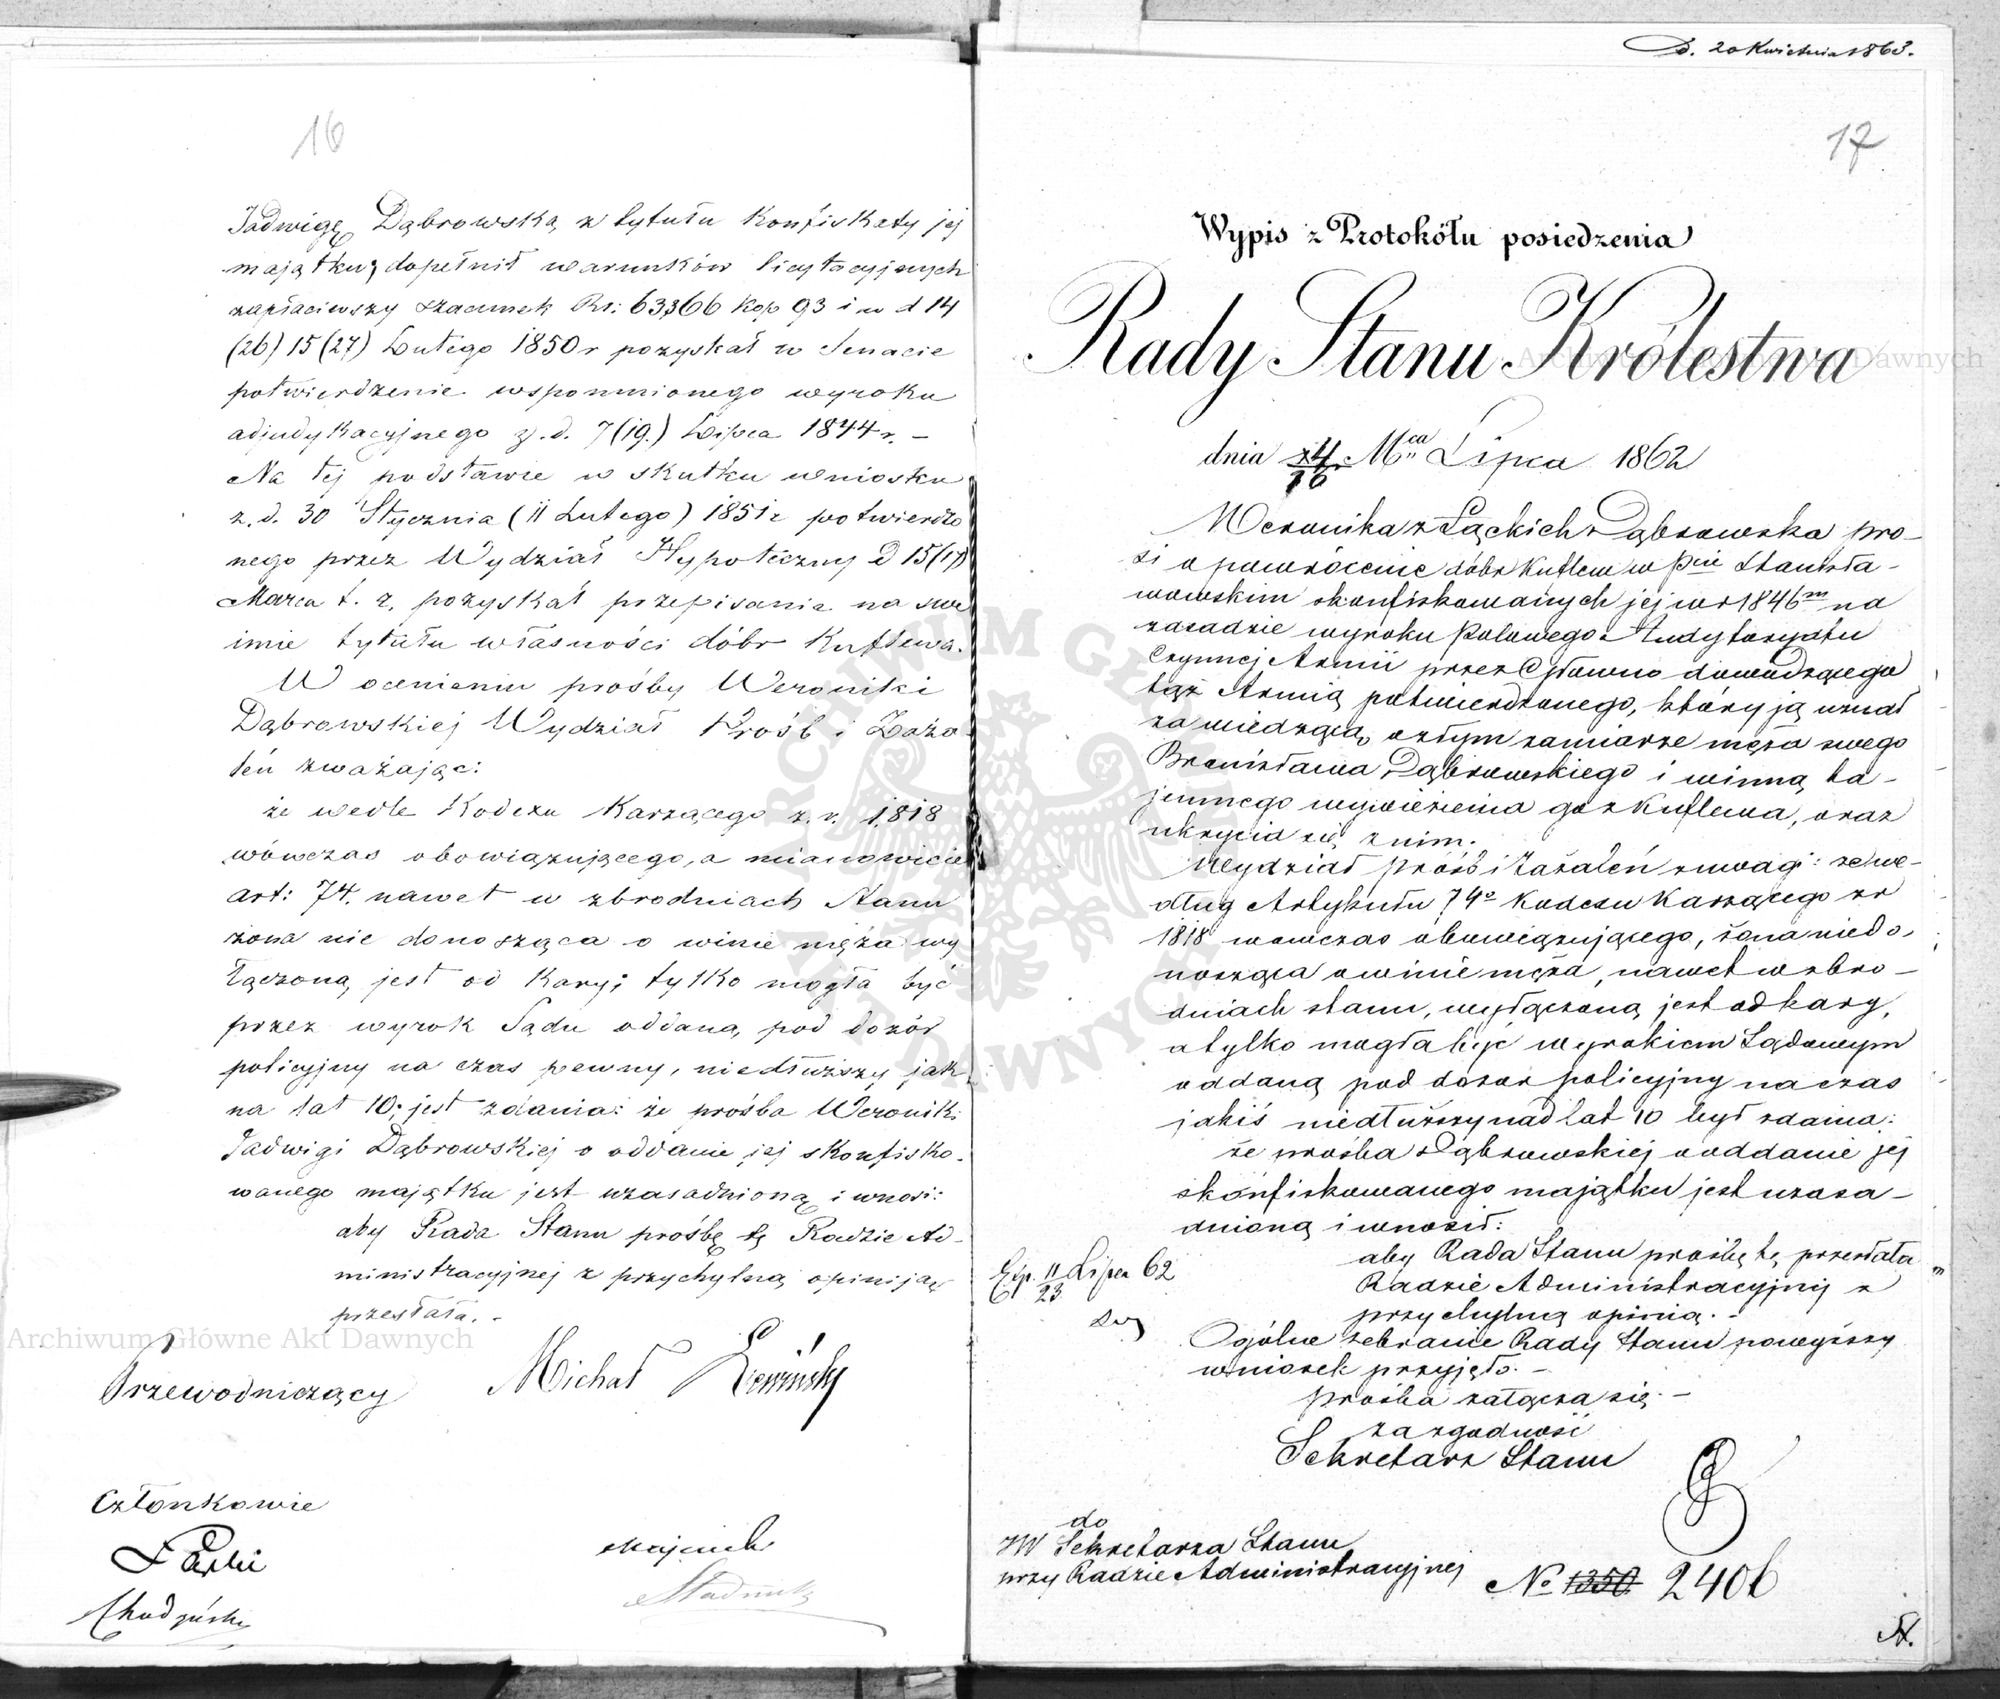 16
Jadwigę Dąbrowską z tytułu Konfiskaty jej
majątku, dopełnił warunków licytacyjnych
zapłaciwszy szacunek Rs: 63366 Kop 93 i w d 14
(26) 15 (27) Lutego 1850 r pozyskał w Senacie
potwierdzenie wspomnionego wyroku
adjudykacyjnego z. d. 7 (19.) Lipca 1844 r. –
Na tej podstawie w skutku wniosku
z. d. 30 Stycznia (11 Lutego) 1851 r potwierdzo
nego przez Wydział Hypoteczny d 15 (17)
Marca t. r. pozyskał przepisanie na swe
imie tytułu własności dóbr Kuflewa.
W ocenieniu prośby Weroniki
Dąbrowskiej Wydział Próśb i Zaża
leń zważając:
że wedle Kodexu Karzącego z. r. 1818
wówczas obowiązującego, a mianowicie
art: 74. nawet w zbrodniach Stanu
żona nie donosząca o winie męża wy
łączoną jest od Kary; tylko mogła być
przez wyrok Sądu oddaną pod dozór
policyjny na czas pewny, niedłuższy jak
na lat 10; jest zdania: że prośba Weroniki
Jadwigi Dąbrowskiej o oddanie jej skonfisko-
wanego majątku jest uzasadnioną i wnosi:
aby Rada Stanu prośbę tę Radzie Ad-
ministracyjnej z przychylną opiniją
przesłała. -
Przewodniczący Michał
Członkowie
D. 20 Kwietnia 1863.
17
Wypis z Protokółu posiedzenia
Rady Stanu Królestwa
dnia 4/16 Mca Lipca 1862
Weronika z Łąckich Dąbrowska pro-
si o powrócenie dóbr Kuflew w Pcie Stanisła-
wowskim skonfiskowanych jej w r 1846m na
zasadzie wyroku Polowego Audytoryatu
Czynnej Armii przez Głowno dowodzącego
tąż Armią potwierdzonego, który ją uznał
za wiedzącą o złym zamiarze męża swego
Bronisława Dąbrowskiego i winną ta-
jemnego wywiezienia go z Kuflewa, oraz
ukrycia się z nim.
Wydział Próśb i Zażaleń z uwagi: że we-
dług Artykułu 74o Kodexu Karzącego z r
1818 wówczas obowiązującego, żona niedo-
nosząca o winie męża, nawet w zbro-
dniach stanu, wyłączoną jest od kary,
a tylko mogła być wyrokiem Sądowym
oddaną pod dozór policyjny na czas
jakiś niedłuższy nad lat 10 był zdania:
że prośba Dąbrowskiej o oddanie jej
skonfiskowanego majątku jest uzasa-
dnioną i wnosił:
aby Rada Stanu prośbę tę przesłała
Radzie Administracyjnej z
przychylną opinią. -
Exp. 11/23 Lipca 62
Ogólne zebranie Rady Stanu powyższy
wniosek przyjęło. -
Prośba załącza się. -
za zgodność
Sekretarz Stanu
do
JW Sekretarza Stanu
przy Radzie Administracyjnej
No 1350 2406
Archiwum Główne Akt Dawnych
Archiwum Główne Akt Dawnych
ARCHIWUM GŁÓWNE AKT DAWNYCH